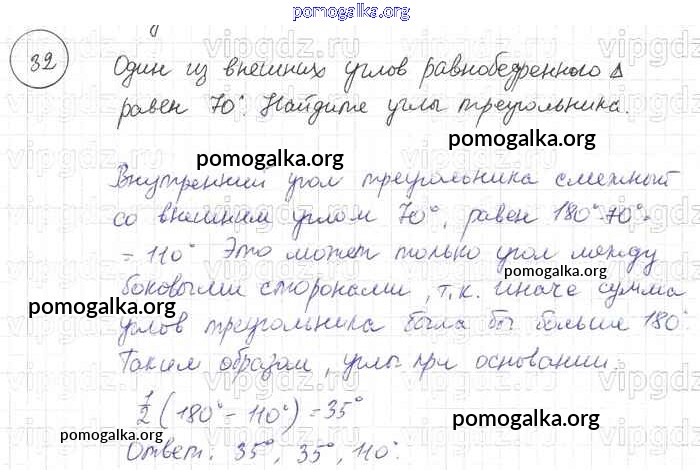 pomogalka.org
32
Один из внешних углов равнобедренного Δ
равен 70°. Найдите углы треугольника.
pomogalka.org
pomogalka.org
Внутренний угол треугольника смежный
со внешним углом 70°, равен 180°-70°=
= 110° Это может только угол между
pomogalka.org
боковыми сторонами, т.к. иначе сумма
pomogalka.org
углов треугольника была бы больше 180°
Таким образом, углы при основании:
1/2 (180° - 110°) = 35°
pomogalka.org
pomogalka.org
Ответ: 35°, 35°, 110°.